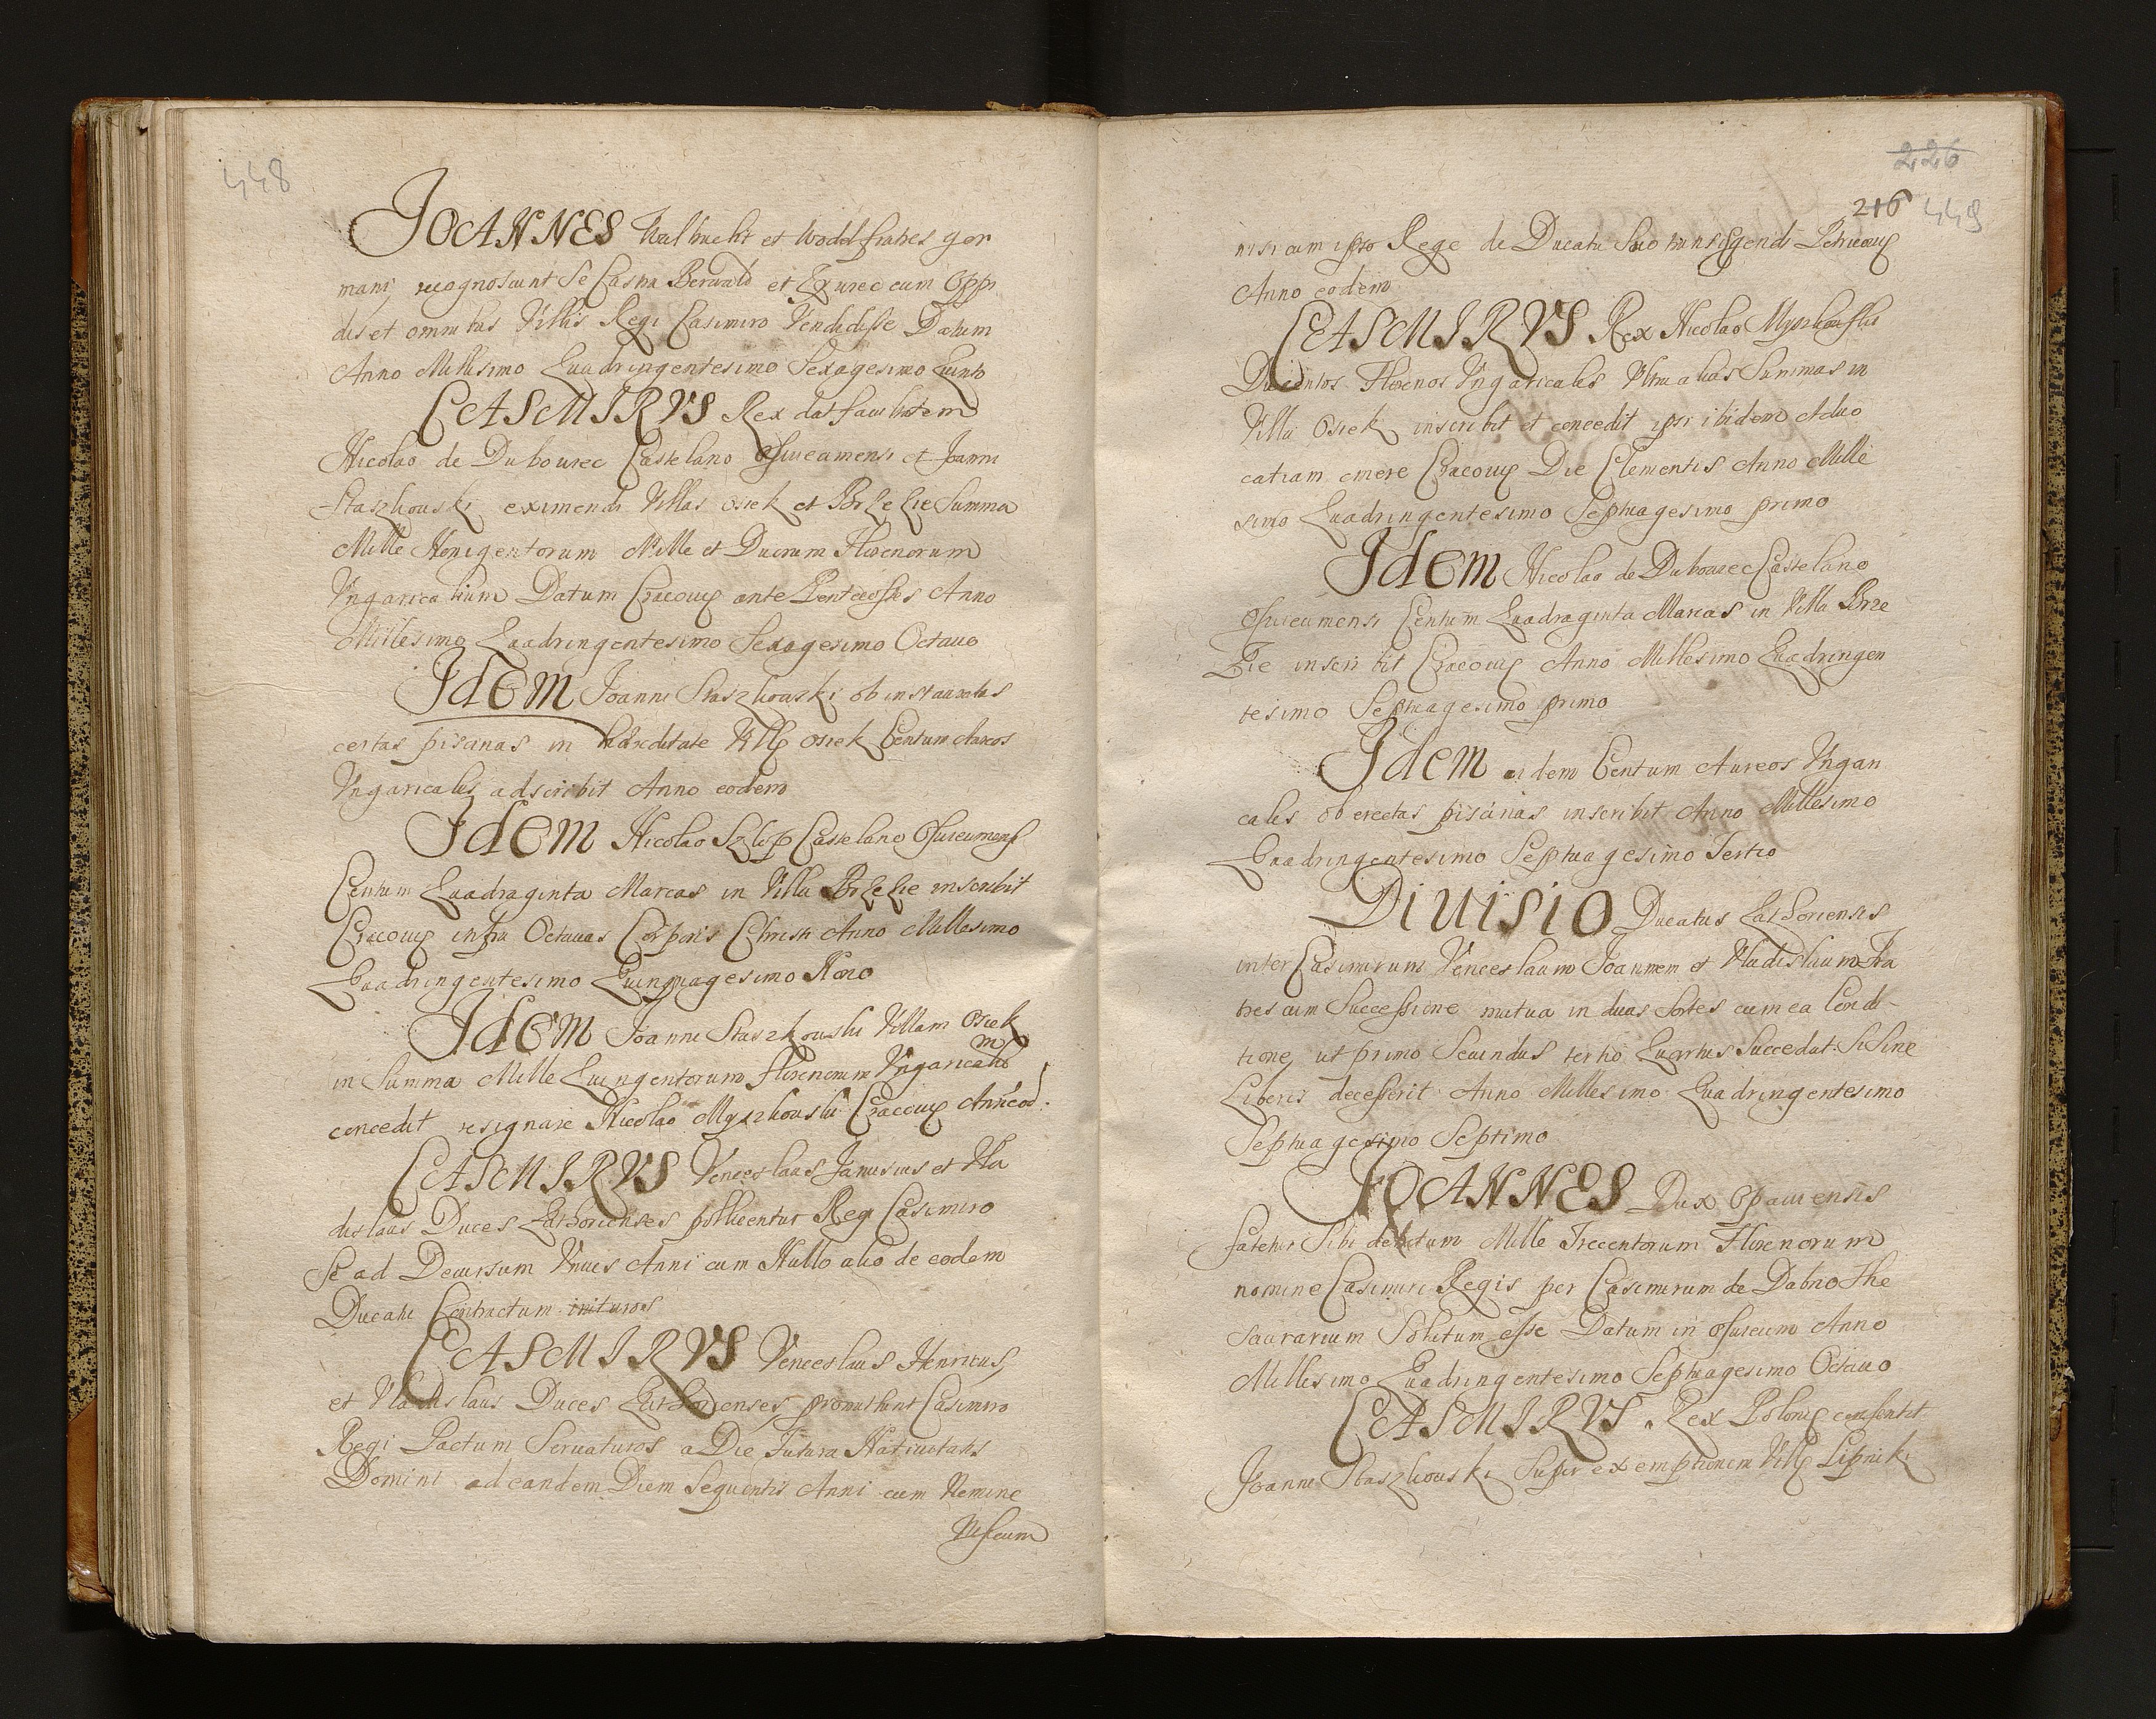 448
JOANNES et frates ger
mani, recognoscunt Se Castra Berwald et Zÿwiec cum Oppi
dis et omnibus Villis Regi Casimiro Vendidisse Datum
Anno Millesimo Quadringentesimo Sexagesimo Quinto
CASMIRVS Rex dat facultatem
Nicolao de Dubowiec Castelano Osuiecimensi et Joanni
Staszkouski eximendi Villas Osiek et Brzezie Summa
Mille Nongentorum Mille et Duorum Florenorum
Vngaricalium Datum Cracouię ante Pentecostes Anno
Millesimo Quadringentesimo Sexagesimo Octauo
Idem Joanni Staszkouski ob instauratas
certas piscinas in hæreditate Villę Osiek Centum Aureos
Vngaricales adscribit Anno eodem
Idem Nicolao Szlop Castelano Osuiecimensi
Centum Quadraginta Marcas in Villa Brzezie inscribit
Cracouię infra Octauas Corporis Christi Anno Millesimo
Quadringentesimo Quinquagesimo Nono
Idem Joanni Staszkouski Villam Osiek
in Summa Mille Quingentorum florenorum Vngaricaliũ
concedit resignare Nicolao Myszkouski Cracouię Anno eod.
CASMIRVS Venceslaus Janusius et Vla
dislaus Duces Zathorienses pollicentur Regi Casimiro
Se ad Decursum Vnius Anni cum Nullo alio de eodem
Ducatu Contractum inituros
CASMIRVS Venceslaus Henricus,
et Vladislaus Duces Zathorienses promittunt Casimiro
Regi Pactum Seruaturos a Die Futura Natiuitatis
Domini ad eandem Diem Sequentis Anni cum Nemine
226
216 449
nisi cum ipso Rege de Ducatu Suo transigendi Petricouię
Anno eodem
CASMIRVS Rex Nicolao Myszkouski
Ducentos Florenos Vngaricales Vltra alias Summas in
Villa Osiek inscribit et concedit ipsi ibidem Aduo
catiam emere Cracouię Die Clementis Anno Mille
simo Quadringentesimo Septuagesimo primo
Idem Nicolao de Dubowiec Castelano
Osuiecimensi Centum Quadraginta Marcas in Villa Brze
zie inscribit Cracouię Anno Millesimo Quadringen
tesimo Septuagesimo primo
Idem eidem Centum Aureos Vngari
cales ob erectas piscinas inscribit Anno Millesimo
Quadringentesimo Septuagesimo Tertio
Diuisio Ducatus Zathoriensis
inter Casimirum Venceslaum Joannem et Vladislaum Fra
tres cum Successione mutua in duas Sortes cum ea Condi-
tione, ut primo Secundus tertio Quartus Succedat Si Sine
Liberis decesserit Anno Millesimo Quadringentesimo
Septuagesimo Septimo
JOANNES Dux Opauiensis
fatetur Sibi debitum Mille Trecentorum Florenorum
nomine Casimiri Regis per Casimirum de Dabno The
saurarium Solutum esse Datum in Osuiecim Anno
Millesimo Quadringentesimo Septuagesimo Octauo
CASMIRVS Rex Polonię consentit
Joanni Staszkouski Super exemptionem Villę Lipniki